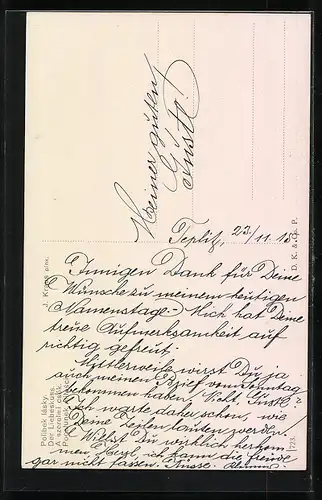 Meiner guten
Gustl!
Teplitz, 23/11 15
Innigen Dank für Deine
Wünsche zu meinem heutigen
Namenstage. – Mich hat Deine
treue Aufmerksamkeit auf
richtig gefreut.
Mittlerweile wirst Du ja
auch meinen Brief vom Sonntag
bekommen haben. Nicht Gustl?
Ich warte daher schon, wie
Deine Zeilen lauten werden.
Willst Du wirklich herkom
men Herzl, ich kann die Freude
gar nicht fassen. Küsse.
Polibek lásky.
Der Liebeskuss.
A szerelmi csók.
J. pinx.
D. K. & P.